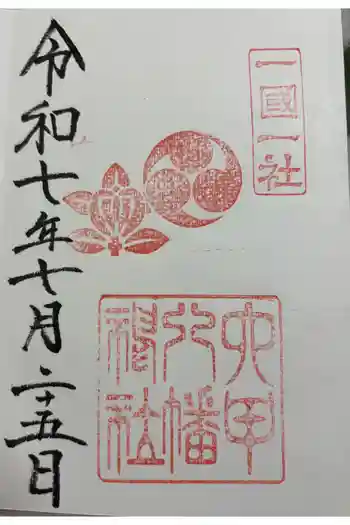 一國一社
六甲
八幡
神社
令和七年七月二十五日